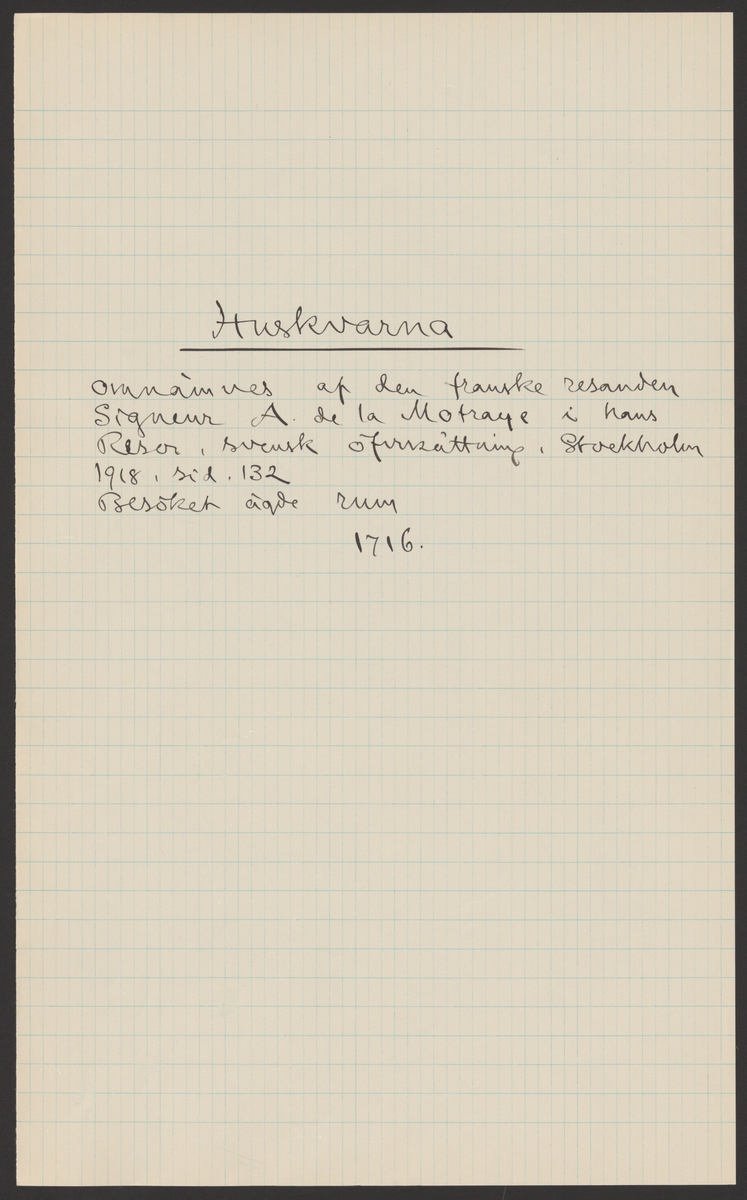 Huskvarna
omnämnes af den franske resanden
Signeur A. de la Motraye i hans
Resor, svensk öfversättning, Stockholm
1918, sid. 132
Besöket ägde rum
1716.